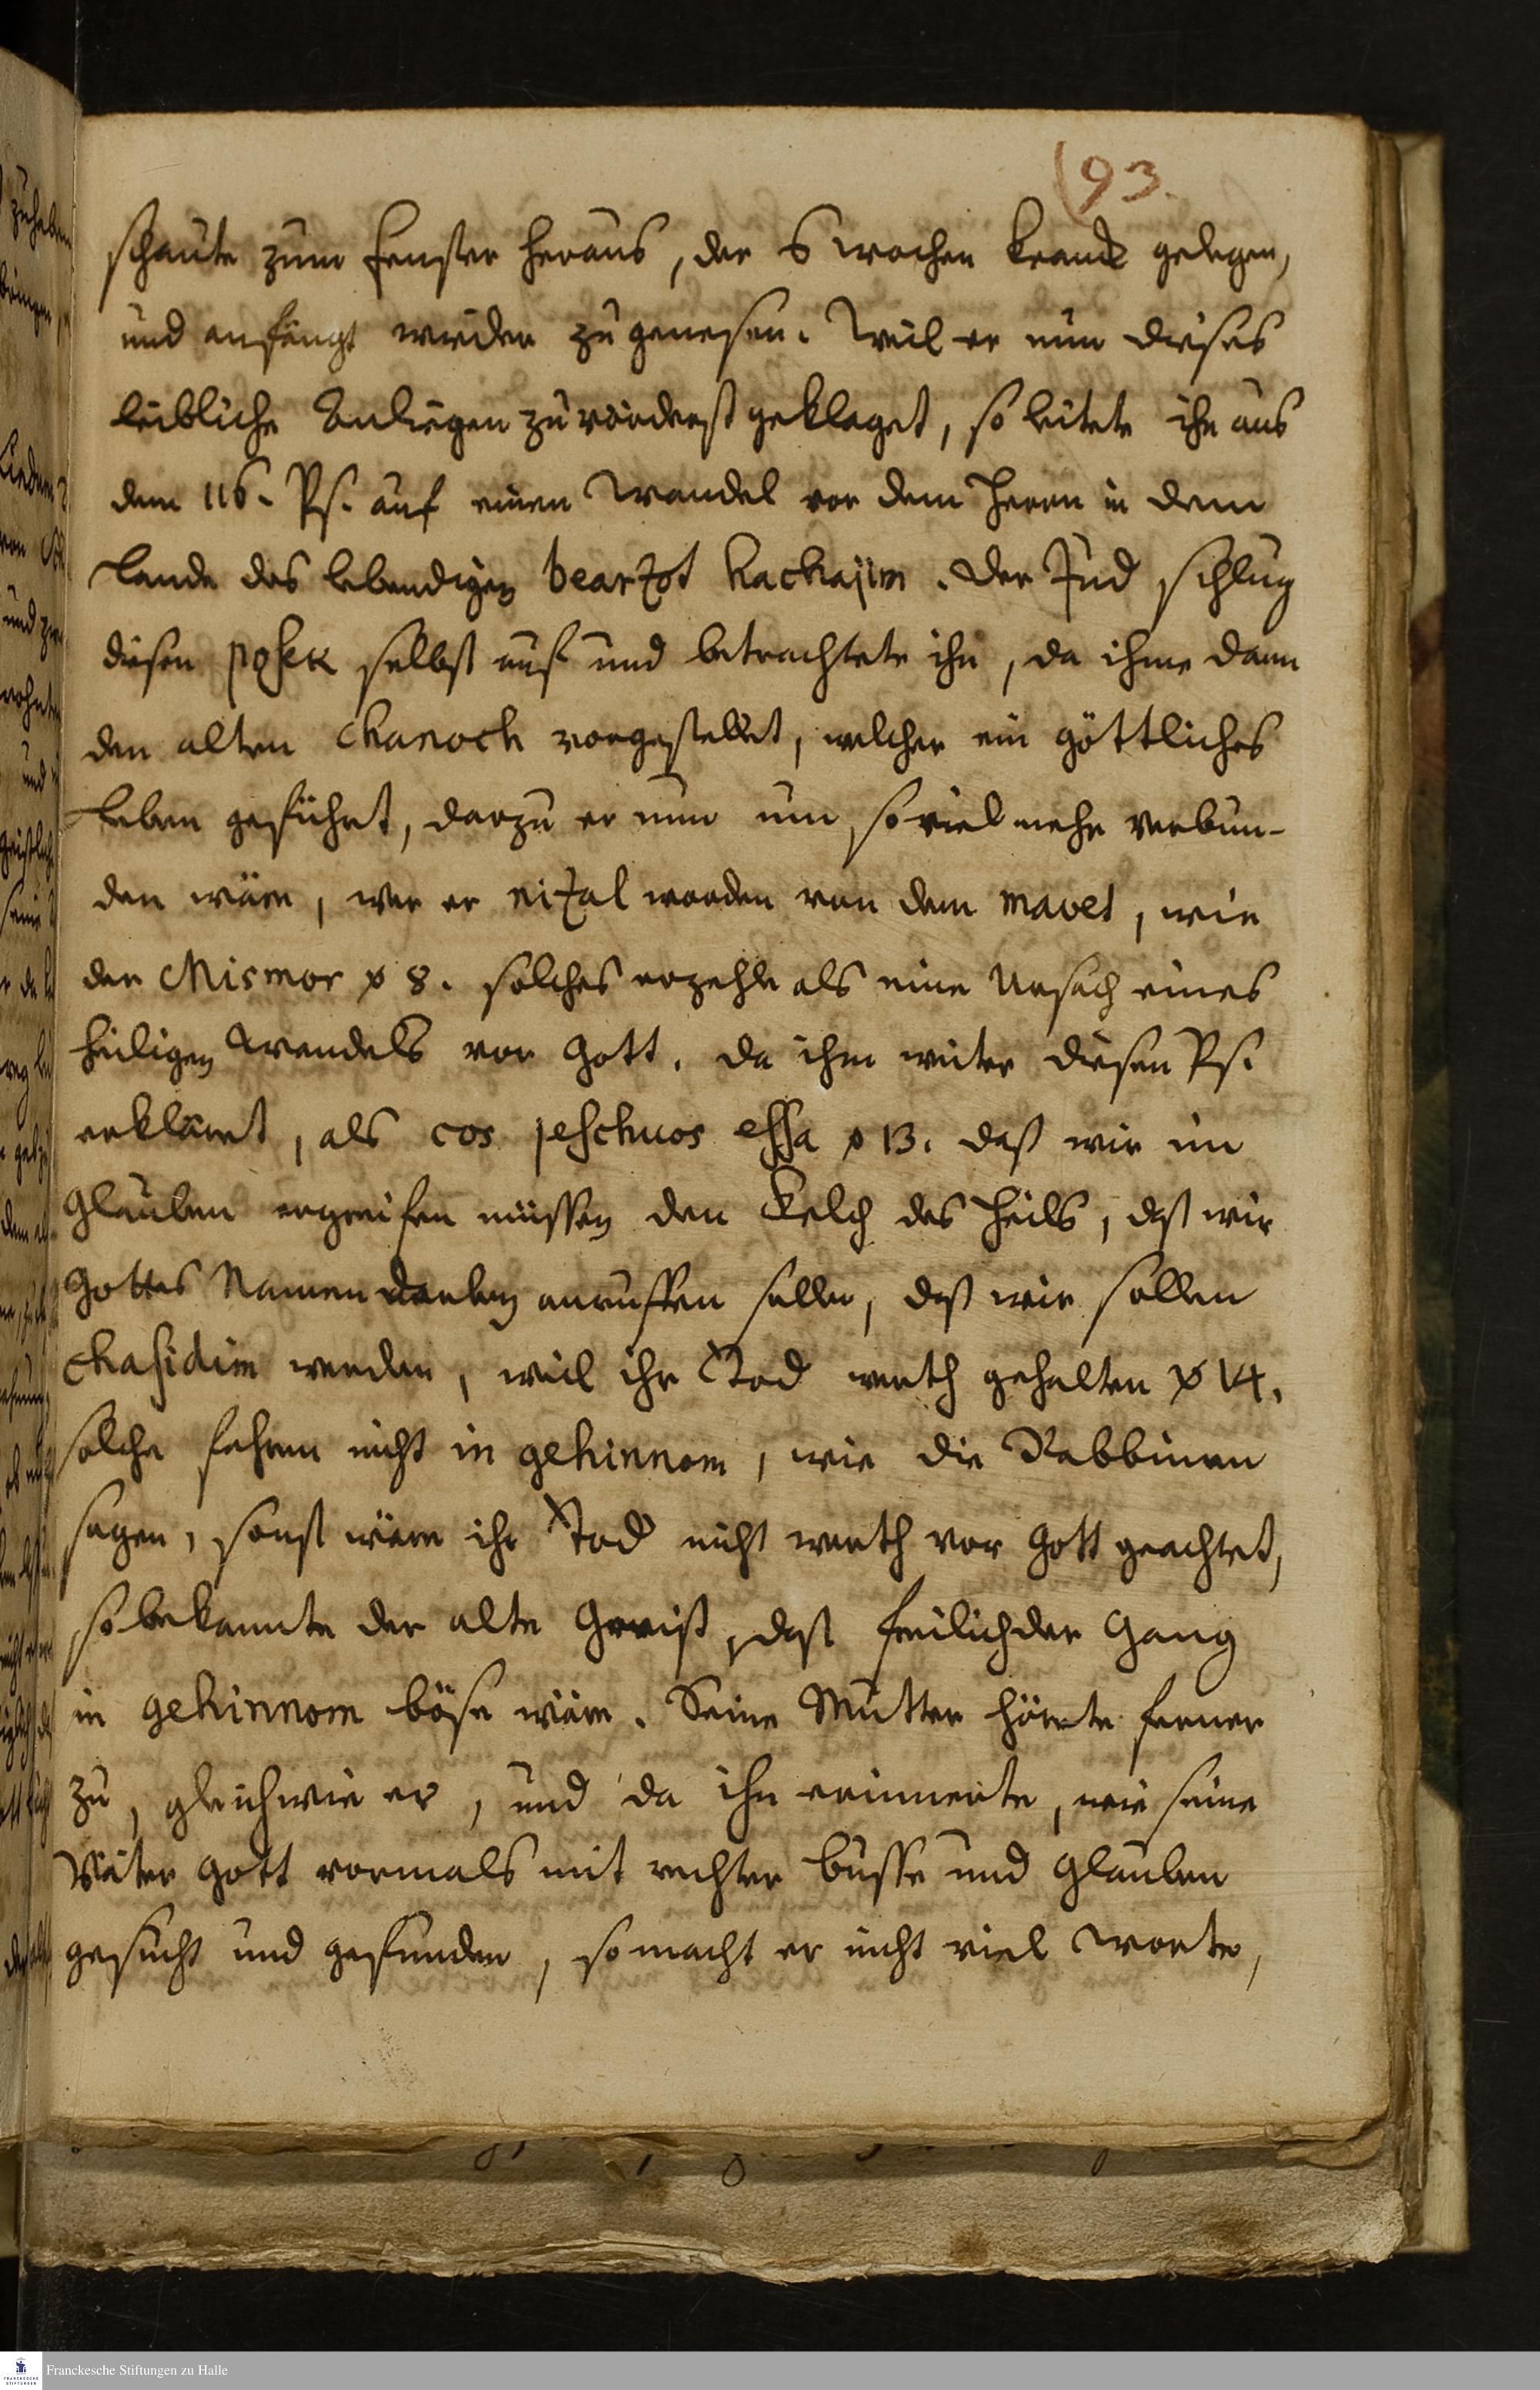 (93.
schaute zum Fenster heraus, der 6 wochen kranck gelegen,
und anfängt wieder zu genesen. Weil er nun dieses
leibliche Anliegen zuvörderst geklaget, so leitete ihn aus
dem 116. Ps. auf einen Wandel vor dem Herrn in dem
Lande der lebendigen bearzot hachajim. Der Jud schlug
diesen posek selbst auf und betrachtete ihn, da ihme dann
den alten Chanoch vorgestellet, welcher ein göttliches
Leben geführet, darzu er nun um so viel mehr verbun-
den wäre, weil er nizal worden von dem mavet, wie
der Mismor v 8. solches erzehle als eine Ursach eines
heiligen Wandels vor Gott. Da ihm weiter diesen Ps.
erkläret, als cos jeschuos essa v 13. daß wir im
Glauben ergreifen müssen den Kelch des Heils, daß wir
Gottes Namen anruffen sollen, daß wir sollen
Chasidim werden, weil ihr Tod werth gehalten v 14.
solche fahren nicht in gehinnom, wie die Rabbinen
sagen, sonst wäre ihr Tod nicht werth vor Gott geachtet,
so bekannte der alte Greiß, daß freilich der Gang
in gehinnom böse wäre. Seine Mutter hörete ferner
zu, gleichwie er, und da ihn erinnerte, wie seine
Väter Gott vormals mit rechter busse und Glauben
gesucht und gefunden, so macht er nicht viel Worte,
Franckesche Stiftungen zu Halle